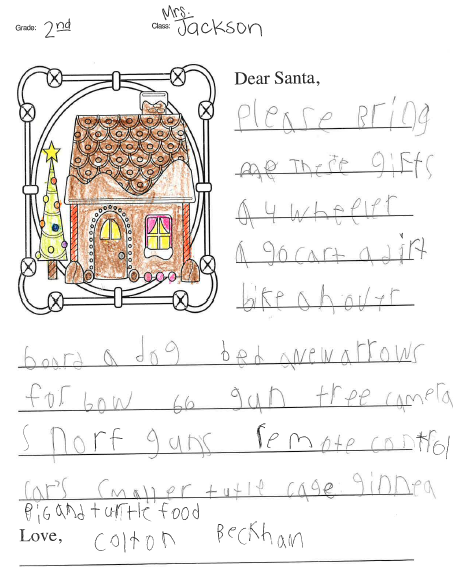 Grade: 2nd
Class: Mrs. Jackson
Dear Santa,
please Bring
me these gifts
a 4 wheeler
a go cart a dirt
bike a hover
board a dog bed a new arrows
for bow bb gun tree camera
s norf guns remote control
car's smaller tutle cage ginnea
pig and turtle food
Love, colton Beckham